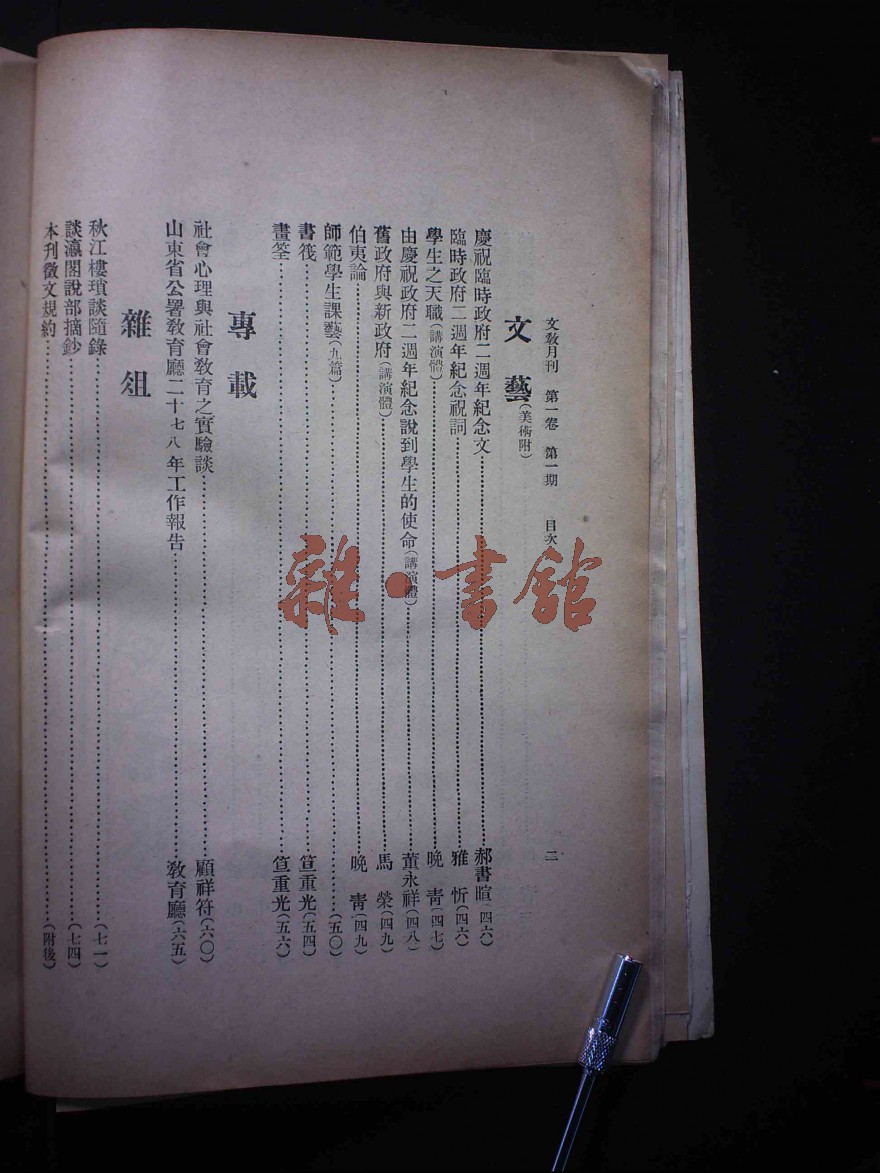 文教月刊 第一卷 第一期 目次 二
文藝(美術附)
慶祝臨時政府二週年紀念文……郝書暄(四六)
臨時政府二週年紀念祝詞……雅忻(四六)
學生之天職(講演體)……晚靑(四七)
由慶祝政府二週年紀念說到學生的使命(講演體)……董永祥(四八)
舊政府與新政府(講演體)……馬榮(四九)
伯夷論……晚靑(四九)
師範學生課藝(九篇)……(五〇)
書筏……笪重光(五四)
畫筌……笪重光(五六)
專載
社會心理與社會敎育之實驗談……顧祥符(六〇)
山東省公署敎育廳二十七八年工作報告……敎育廳(六五)
雜俎
秋江樓瑣談隨錄……(七一)
談瀛閣說部摘鈔……(七四)
本刊徵文規約……(附後)
雜·書館